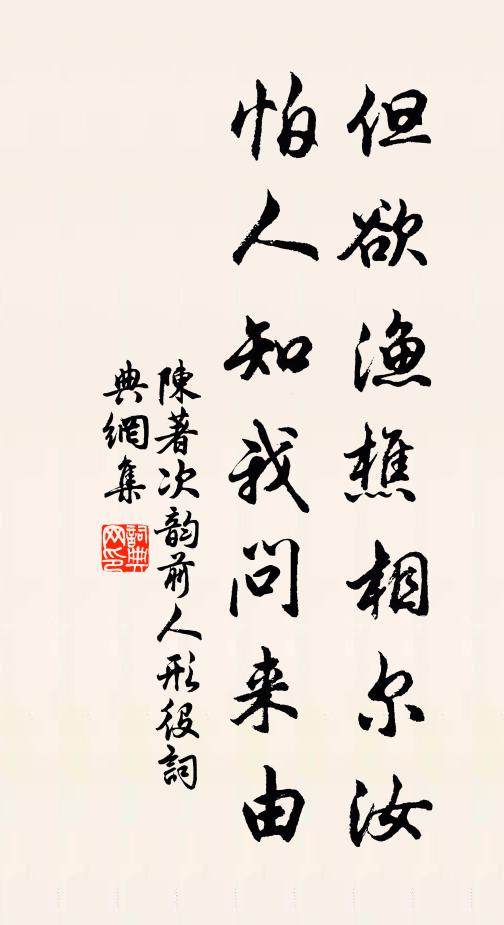 但欲渔樵相尔汝
怕人知我问来由
陳著次韵前人形役詞
典網集
詞典
网印